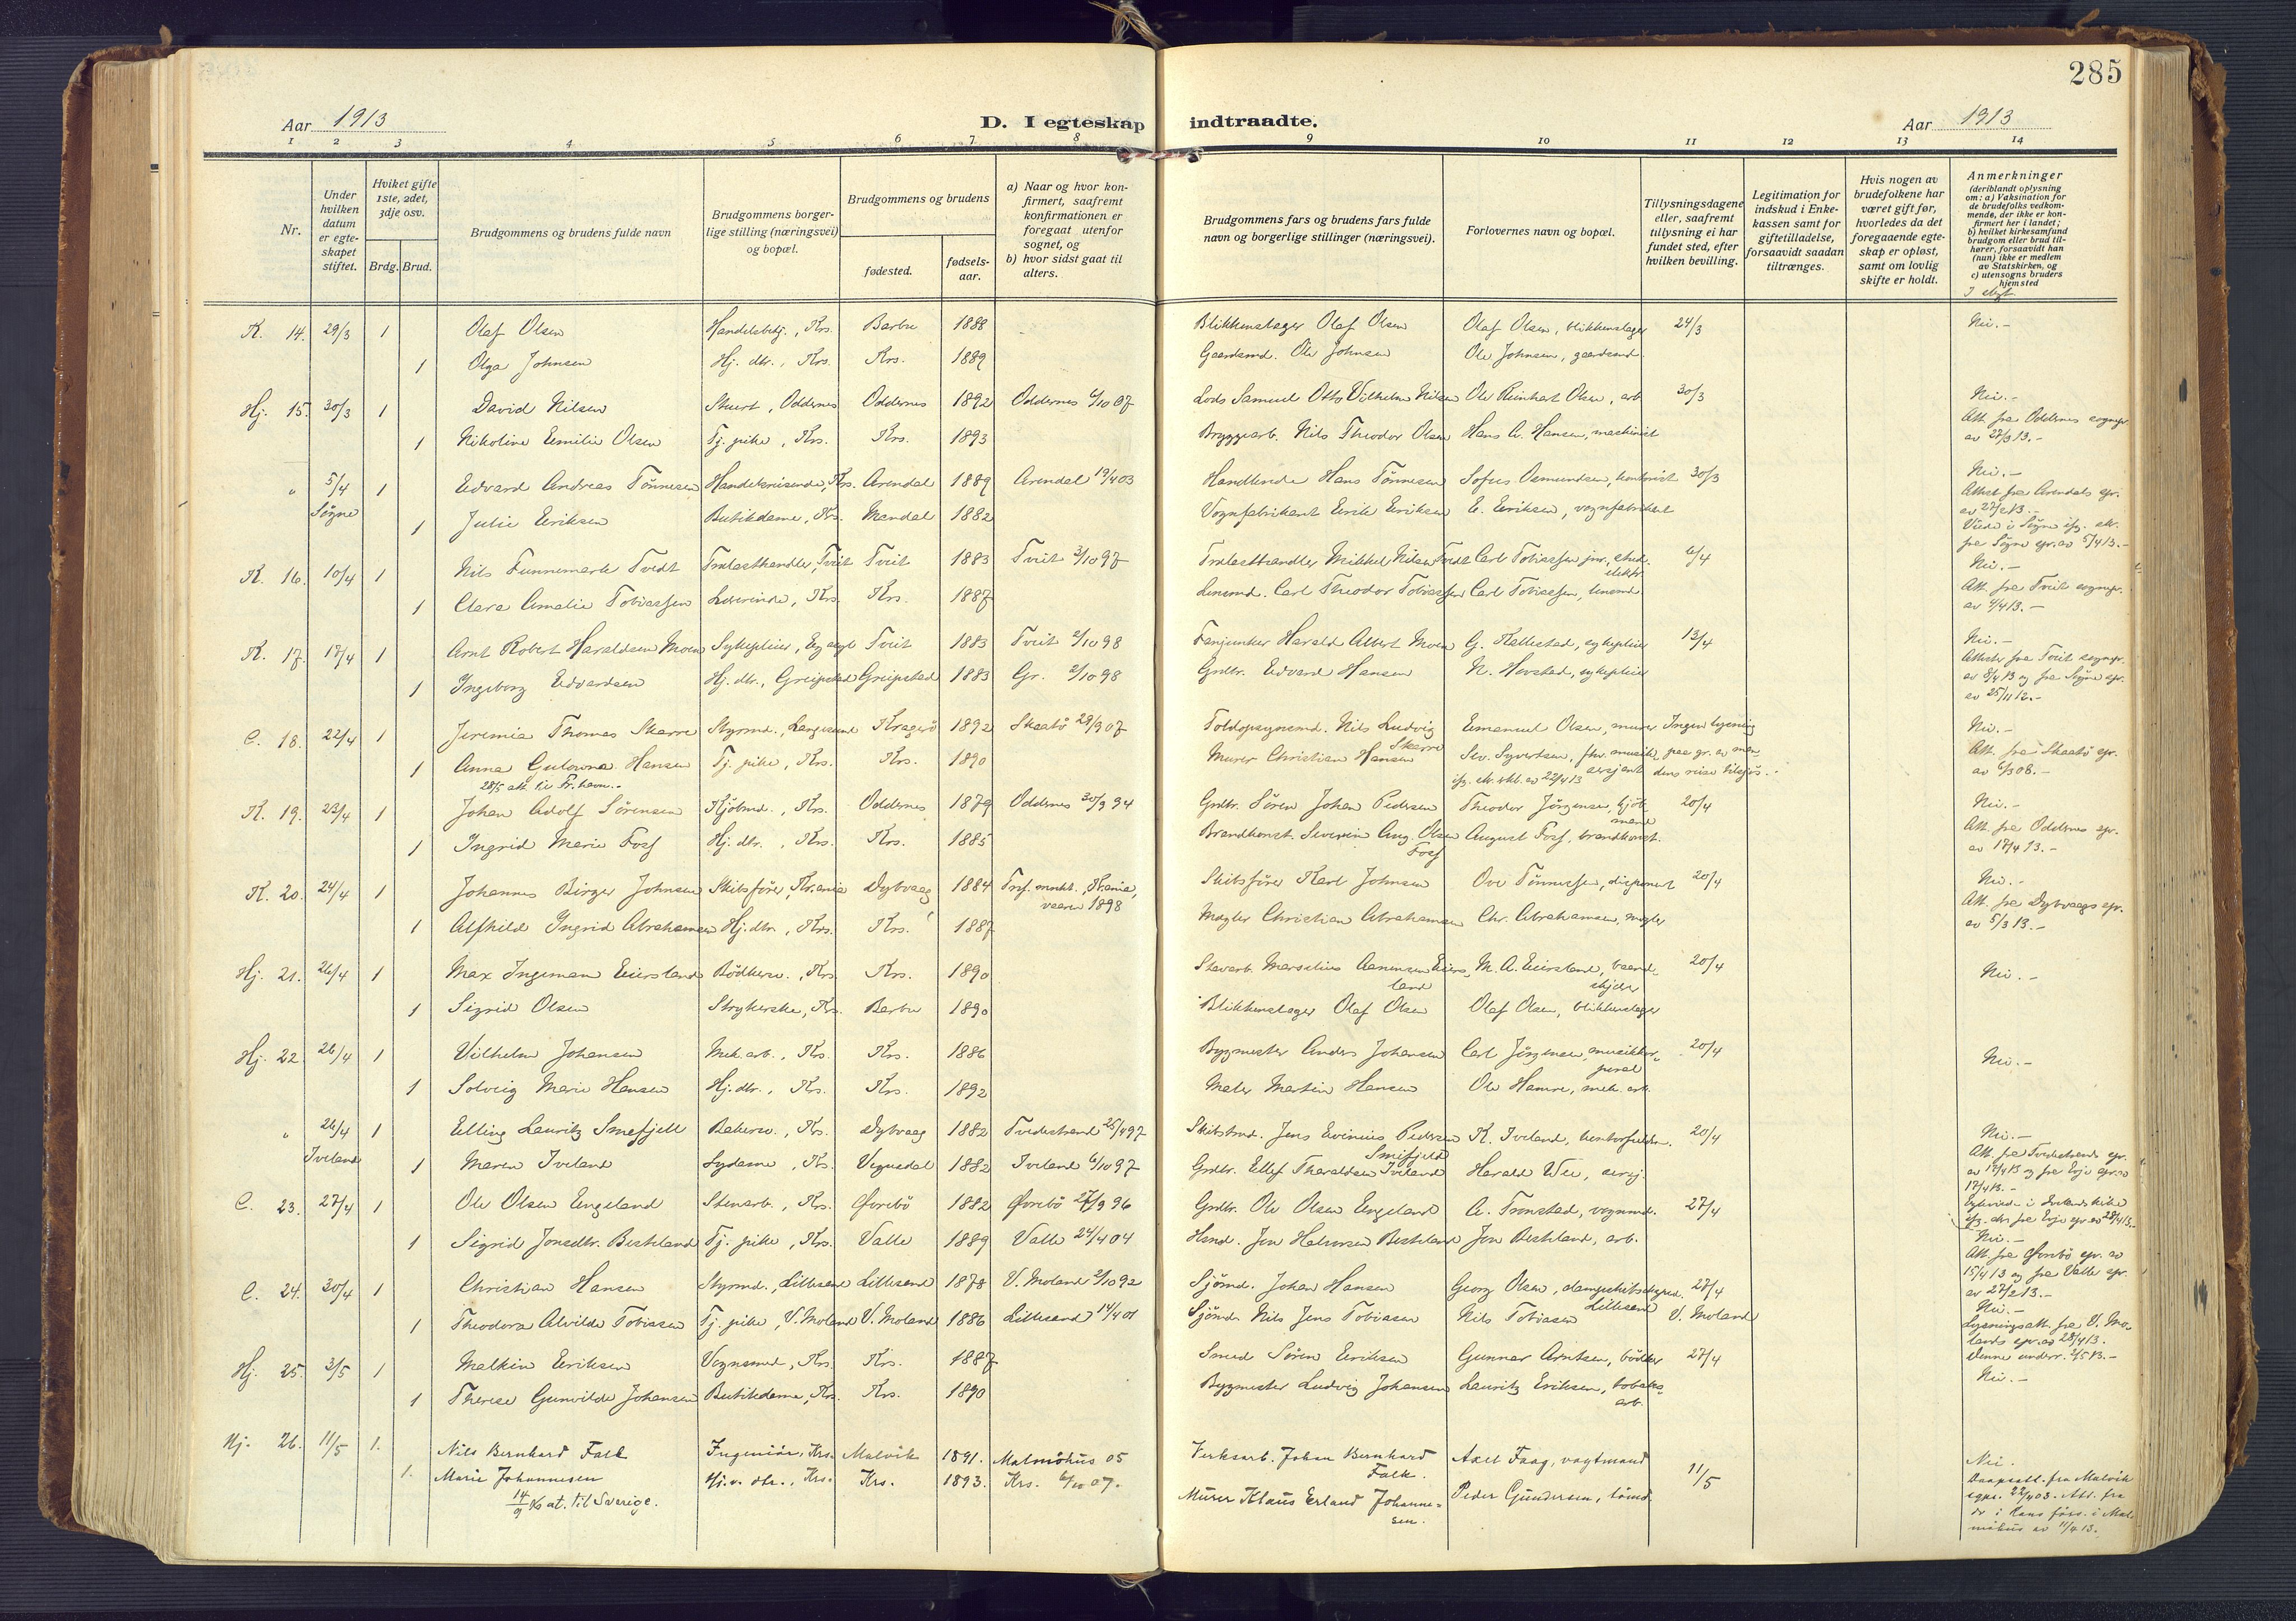 285
Aar 1913
D. I egteskap indtraadte.
Aar 1913
1 2 3 4 5 6 7 8 9 10 11 12 13 14
Nr.
Under hvilken datum er egteskapet stiftet.
Hviket gifte 1ste, 2det, 3dje osv.
Brdg. Brud.
Brudgommens og brudens fulde navn
Brudgommens borgerlige stilling (næringsvei) og bopæl.
Brudgommens og brudens
fødested.
fødselsaar.
a) Naar og hvor konfirmert, saafremt konfirmationen er foregaat utenfor sognet, og
b) hvor sidst gaat til alters.
Brudgommens fars og brudens fars fulde navn og borgerlige stillinger (næringsvei).
Forlovernes navn og bopæl.
Tillysningsdagene eller, saafremt tillysning ei har fundet sted, efter hvilken bevilling.
Legitimation for indskud i Enkekassen samt for giftetilladelse, forsaavidt saadan tiltrænges.
Hvis nogen av brudefolkene har været gift før, hvorledes da det foregaaende egteskap er opløst, samt om lovlig skifte er holdt.
Anmerkninger
(deriblandt oplysning om: a) Vaksination for de brudefolks vedkommende, der ikke er konfirmert her i landet;
b) hvilket kirkesamfund brudgom eller brud tilhører, forsaavidt han (hun) ikke er medlem av Statskirken, og
c) utensogns bruders hjemsted
K. 14. 29/3 1 Olaf Olsen Handelsbetj., Krs. Barbu 1888 Blikkenslager Olaf Olsen Olaf Olsen, blikkenslager 24/3 Nei.-
1 Olga Johnsen Hj. dtr., Krs. Krs. 1889 Gaardsmd. Ole Johnsen Ole Johnsen, gaardsmd.
Hj. 15. 30/3 1 David Nilsen Stuert, Oddernes Oddernes 1892 Oddernes 6/10 07 Lods Samuel Otto Vilhelm Nilsen Ole Reinhart Olsen, arb. 30/3 Nei.-
Att. fra Oddernes sognepr. av 27/3 13.-
1 Nikoline Emilie Olsen Tj. pike, Krs. Krs. 1893 Bryggearb. Nils Theodor Olsen Hans A. Hansen, maskinist
" 5/4 Søgne 1 Edvard Andreas Tønnesen Handelsreisende, Krs. Arendal 1889 Arendal 19/4 03 Handlende Hans Tønnesen Sofus Osmundsen, kontorist 30/3 Nei.-
Attest fra Arendals spr. av 27/2 13.-
1 Julie Eriksen Butikdame, Krs. Mandal 1882 Vognfabrikant Eirik Eriksen E. Eriksen, vognfabrikant
Viede i Søgne ifg. skr. fra Søgne spr. av 5/4 13.-
K. 16. 10/4 1 Nils Funnemark Tvedt Trælasthandler, Tveit Tveit 1883 Tveit 3/10 97 Trælasthandler Mikkel Nilsen Tvedt Carl Tobiassen jnr., stud. elektr. 6/4 Nei.-
Att. fra Tveit sognepr. av 4/4 13.-
1 Clara Amalie Tobiassen Lærerinde, Krs. Krs. 1887 Lensmd. Carl Theodor Tobiassen Carl Tobiassen, lensmd.
K. 17. 17/4 1 Arnt Robert Haraldsen Moen Sykepleier, Eg asyl Tveit 1883 Tveit 2/10 98 Fanjunker Harald Albert Moen G. Kallestad, sykepleier 13/4 Nei.-
Attester fra Tveit sognepr. av 8/4 13 og fra Søgne spr. av 25/11 12.-
1 Ingeborg Edvardsen Hj. dtr., Greipstad Greipstad 1883 Gr. 2/10 98 Grdbr. Edvard Hansen N. Hovstad, sykepleier
C. 18. 22/4 1 Jeremia Thomas Skarre Styrmd., Langesund Kragerø 1892 Skaatø 29/9 07 Toldopsynsmd. Nils Ludvig Skarre Emanuel Olsen, murer Ingen lysning paa gr. av mandens reise tilsjøs. Nei.-
Att. fra Skaatø spr. av 6/3 08.-
1 Anna Gulowna Hansen Tj. pike, Krs. Krs. 1890 Murer Christian Hansen Sev. Syvertsen, fhv. musiksersjant ifg. skr. erkl. av 22/4 13
28/5 att. til Fr.havn.-
K. 19. 23/4 1 Johan Adolf Sørensen Kjøbmd., Krs. Oddernes 1879 Oddernes 30/9 94 Grdbr. Søren Johan Pedersen Theodor Jørgensen, kjøbmand 20/4 Nei.-
Att. fra Oddernes spr. av 17/4 13.-
1 Ingrid Marie Foss Hj. dtr., Krs. Krs. 1885 Brandkonst. Severin Aug. Olsen Foss August Foss, brandkonst.
K. 20. 24/4 1 Johannes Birger Johnsen Skibsfører, Kr.ania Dybvaag 1884 Tref. menht., Kr.ania, vaaren 1898 Skibsfører Karl Johnsen Ove Tønnessen, disponent 20/4 Nei.-
Att. fra Dybvaags spr. av 5/3 13.-
1 Alfhild Ingrid Abrahamsen Hj. dtr., Krs. Krs. 1887 Mægler Christian Abrahamsen Chr. Abrahamsen, mægler
Hj. 21. 26/4 1 Max Ingeman Eiersland Bødkersv., Krs. Krs. 1890 Stavarb. Marselius Aanensen Eiersland M. A. Eiersland, baandskjær 20/4 Nei.-
1 Sigrid Olsen Strykerske, Krs. Barbu 1890 Blikkenslager Olaf Olsen Olaf Olsen, blikkenslager
Hj. 22. 26/4 1 Vilhelm Johansen Mek. arb., Krs. Krs. 1886 Bygmester Anders Johansen Carl Jørgensen, musikkorporal 20/4 Nei.-
1 Solveig Marie Hansen Hj. dtr., Krs. Krs. 1892 Maler Martin Hansen Ole Hamre, mek. arb.
" 26/4 Iveland 1 Elling Lauritz Smefjell Bakersv., Krs. Dybvaag 1882 Tvedestrand 25/4 97 Skibstmd. Jens Evinius Pedersen Smifjeld K. Iveland, kontorfuldm. 20/4 Nei.-
Att. fra Tvedestrands spr. av 17/4 13 og fra Evje spr. av 17/4 13.-
1 Maren Iveland Sydame, Krs. Vegusdal 1882 Iveland 6/10 97 Grdbr. Ellef Tharaldsen Iveland Harald Wee, sersj.
Egteviede i Ivelands kirke ifg. skr. fra Evje spr. av 28/4 13.-
C. 23. 27/4 1 Ole Olsen Engeland Stenarb., Krs. Øvrebø 1882 Øvrebø 27/9 96 Grdbr. Ole Olsen Engeland A. Tronstad, vognmd. 27/4 Nei.-
Att. fra Øvrebø spr. av 15/4 13 og fra Valle spr. av 27/2 13.-
1 Sigrid Jonsdtr. Besteland Tj. pike, Krs. Valle 1889 Valle 24/4 04 Hsmd. Jon Halvorsen Besteland Jon Besteland, arb.
C. 24. 30/4 1 Christian Hansen Styrmd., Lillesand Lillesand 1878 V. Moland 2/10 92 Sjømd. Johan Hansen Georg Olsen, dampskibsexped. Lillesand 27/4 V. Moland Nei.-
Lysningsatt. fra V. Molands spr. av 28/4 13.
Denne underr. 2/5 13.-
1 Theodora Alvilde Tobiassen Tj. pike, V. Moland V. Moland 1886 Lillesand 14/4 01 Sjømd. Nils Jens Tobiassen Nils Tobiassen
Hj. 25. 3/5 1 Malkin Eriksen Vognsmed, Krs. Krs. 1887 Smed Søren Eriksen Gunnar Arntsen, bødker 27/4 Nei.-
1 Therese Gunvilde Johansen Butikdame, Krs. Krs. 1890 Bygmester Ludvig Johansen Lauritz Eriksen, tobaksarb.
Hj. 26. 11/5 1. Nils Bernhard Falk Ingeniør, Krs. Malvik 1891. Malmöhus 05 Verksarb. Johan Bernhard Falk. Axel Faag, vagtmand 11/5 Nei.
Daapsatt. fra Malvik sgpr. 22/4 03. Att. fra
1. Marie Johannesen Hj.v. dtr., Krs. Krs. 1893. Krs. 6/10 07. Murer Klaus Erland Johannesen. Peder Gundersen, tømd.
Malmöhus av 11/4 13.
14/9 at. til Sverige.